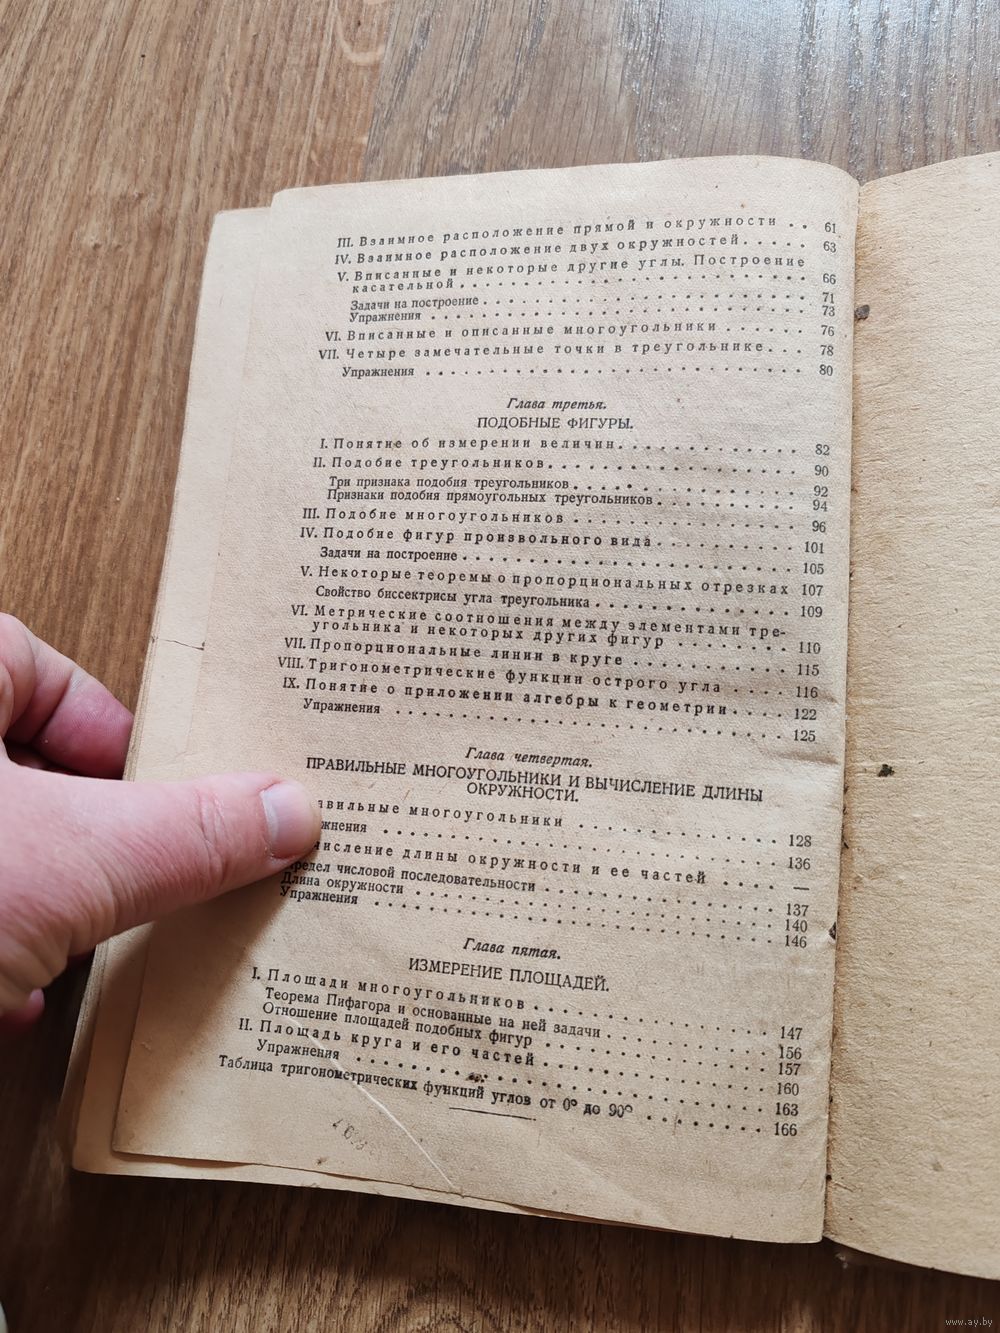 III. Взаимное расположение прямой и окружности . . 61
IV. Взаимное расположение двух окружностей . . . . . 63
V. Вписанные и некоторые другие углы. Построение
касательной . . . . . . . . . . . . . . . . 66
Задачи на построение . . . . . . . . . . . . . . . . 71
Упражнения . . . . . . . . . . . . . . . . 73
VI. Вписанные и описанные многоугольники . . . . . . 76
VII. Четыре замечательные точки в треугольнике . . . 78
Упражнения . . . . . . . . . . . . . . . . 80
Глава третья.
ПОДОБНЫЕ ФИГУРЫ.
I. Понятие об измерении величин . . . . . . . . . . 82
II. Подобие треугольников . . . . . . . . . . . . . . 90
Три признака подобия треугольников . . . . . . . . . . . . 92
Признаки подобия прямоугольных треугольников . . . . . . . . 94
III. Подобие многоугольников . . . . . . . . . . . . . 96
IV. Подобие фигур произвольного вида . . . . . . . . 101
Задачи на построение . . . . . . . . . . . . . . . . 105
V. Некоторые теоремы о пропорциональных отрезках 107
Свойство биссектрисы угла треугольника . . . . . . . . . . . 109
VI. Метрические соотношения между элементами тре-
угольника и некоторых других фигур . . . . . . . 110
VII. Пропорциональные линии в круге . . . . . . . . . 115
VIII. Тригонометрические функции острого угла . . . . 116
IX. Понятие о приложении алгебры к геометрии . . . . 122
Упражнения . . . . . . . . . . . . . . . . 125
Глава четвертая.
ПРАВИЛЬНЫЕ МНОГОУГОЛЬНИКИ И ВЫЧИСЛЕНИЕ ДЛИНЫ
ОКРУЖНОСТИ.
авильные многоугольники . . . . . . . . . . . . 128
жнения . . . . . . . . . . . . . . . . 136
числение длины окружности и ее частей . . . . —
редел числовой последовательности . . . . . . . . . . . . . 137
Длина окружности . . . . . . . . . . . . . . . . 140
Упражнения . . . . . . . . . . . . . . . . 146
Глава пятая.
ИЗМЕРЕНИЕ ПЛОЩАДЕЙ.
I. Площади многоугольников . . . . . . . . . . . . . 147
Теорема Пифагора и основанные на ней задачи . . . . . . . . . 156
Отношение площадей подобных фигур . . . . . . . . . . . . 157
II. Площадь круга и его частей . . . . . . . . . . . . 160
Упражнения . . . . . . . . . . . . . . . . 163
Таблица тригонометрических функций углов от 0° до 90° . . . . . . . 166
www.ay.by